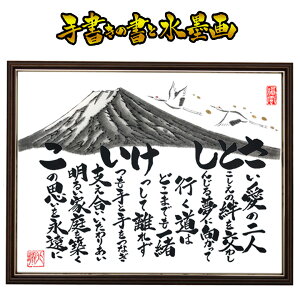 手書きの書と水墨画
さい愛の二人
とこしえの絆を交わし
しんじる夢に向かって
行く道は
どこまでも一緒
けっして離れず
いつも手と手をつなぎ
支え合いいたわりあい
明るい家庭を築く
この思いを永遠に